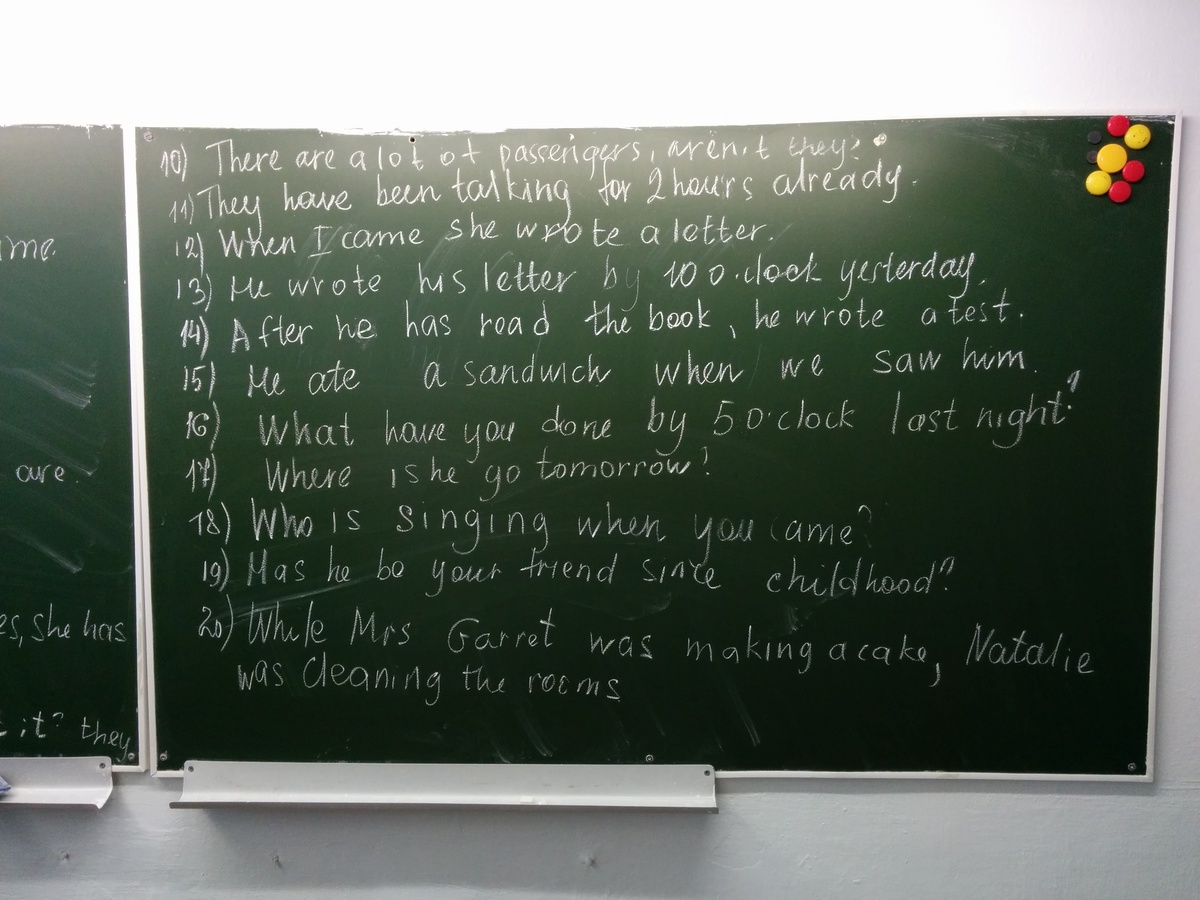 10) There are a lot of passengers, aren't they?
11) They have been talking for 2 hours already.
12) When I came she wrote a letter.
13) He wrote his letter by 10 o'clock yesterday.
14) After he has road the book, he wrote a test.
15) He ate a sandwich when we saw him.
16) What have you done by 5 o'clock last night?
17) Where is he go tomorrow?
18) Who is singing when you came?
19) Has he be your friend since childhood?
20) While Mrs Garret was making a cake, Natalie
was cleaning the rooms
me.
are.
es, she has
it? they